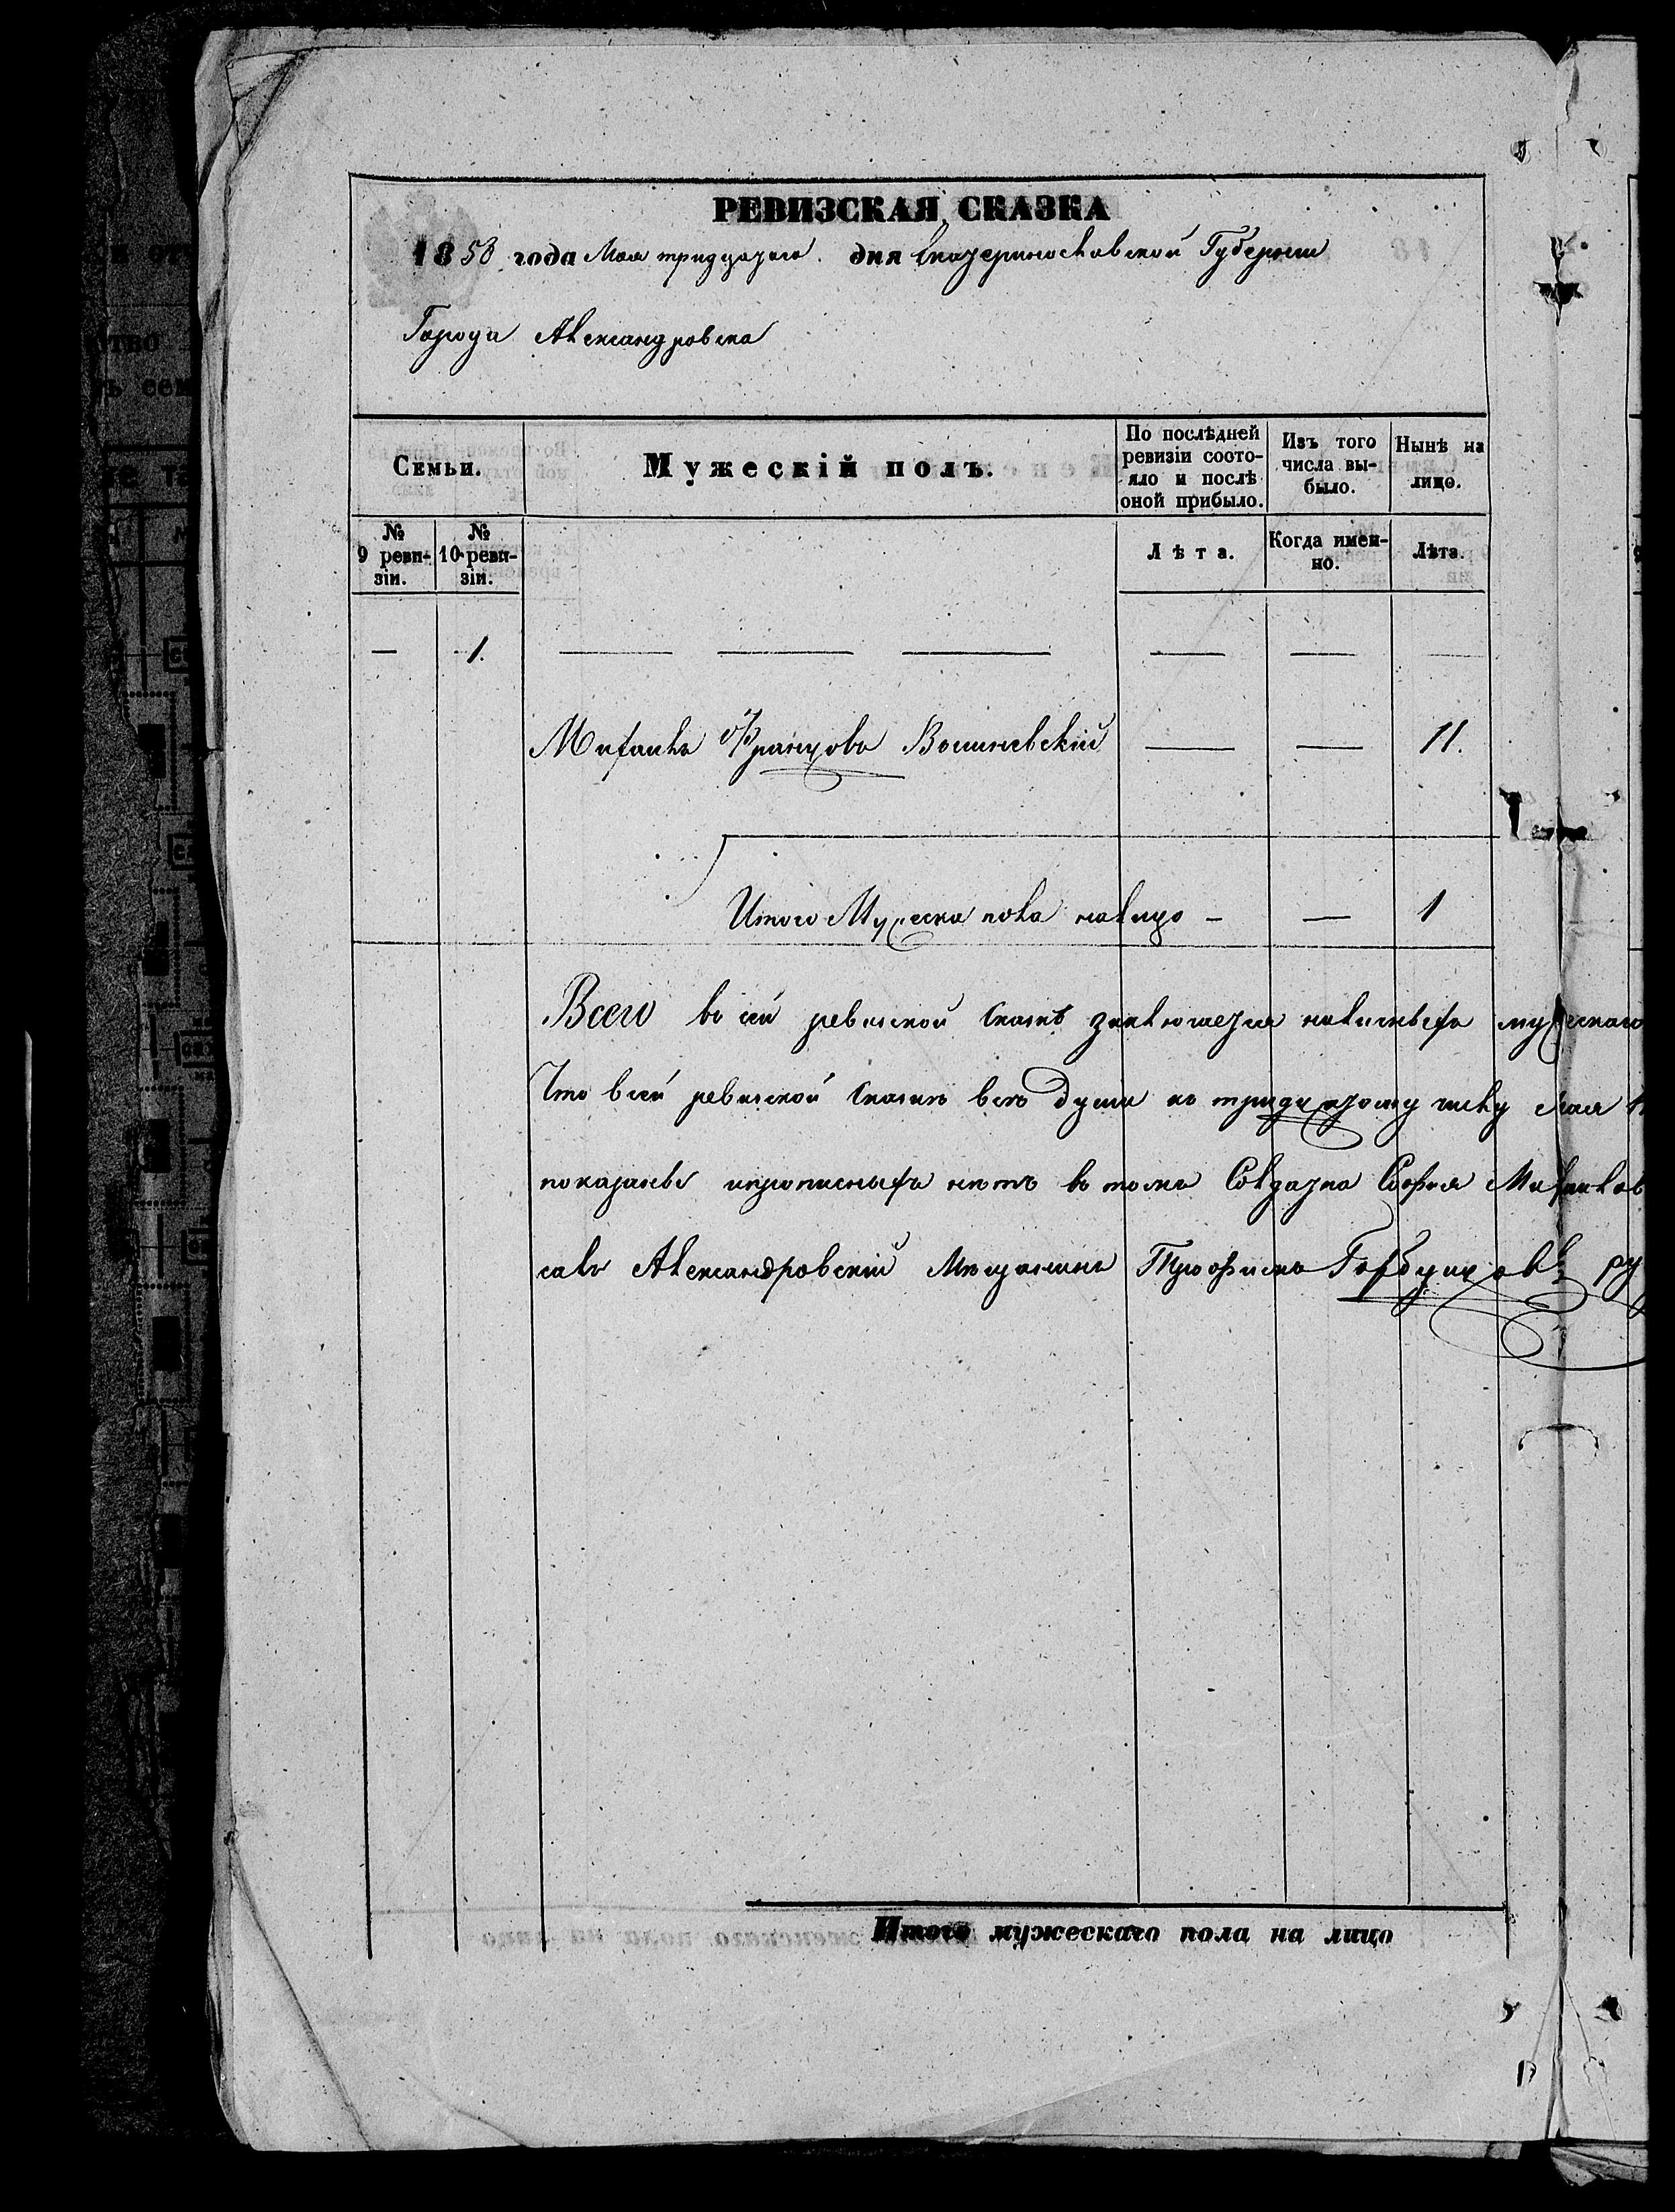 РЕВИЗСКАЯ СКАЗКА
1858 года Мая тридцатаго дня Екатеринославской Губернии
Города Александровска
Семьи.
Мужескій полъ.
По послѣдней ревизіи состо-
яло и послѣ оной прибыло.
Изъ того числа вы-
было.
Нынѣ на лицо.
№ 9 реви-
зіи.
№ 10 реви-
зіи.
Лѣта.
Когда имен-
но.
Лѣта.
— 1. — — — — — —
Михаилъ Францовъ Вошневскій — — 11.
Итого Мужеска пола налицо — — 1
Всего въ сей ревизской сказкѣ заключается мужескаго
Что в сей ревизской сказкѣ всѣ души по тридцатому числу Мая
показаны и прописныхъ нѣтъ въ томъ Солдатка Софья Михайлов
салъ Александровскій Мѣщанинъ Трофимъ ру
Итого мужескаго пола на лицо